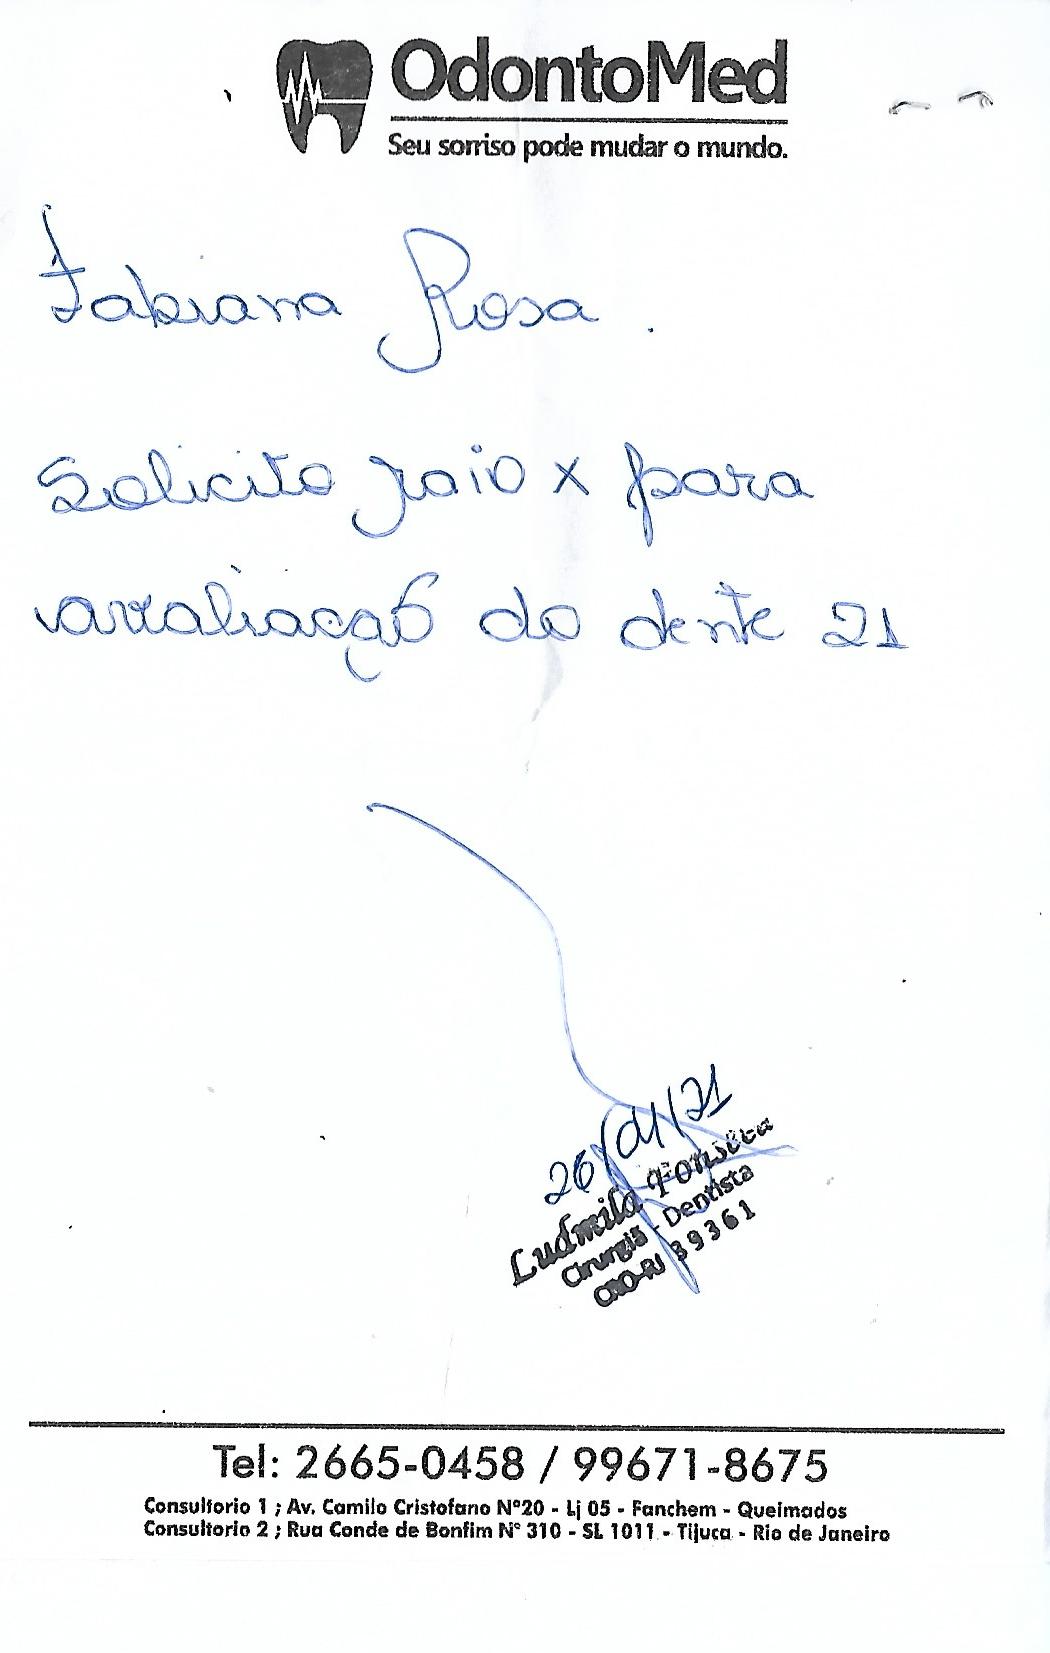 OdontoMed
Seu sorriso pode mudar o mundo.
Fabiana Rosa.
Solicito raio x para
avaliação do dente 21
26/01/21
Ludmila Fonseca
Cirurgiã - Dentista
CRO-RJ 39361
Tel: 2665-0458 / 99671-8675
Consultorio 1 ; Av. Camilo Cristofano Nº20 - Lj 05 - Fanchem - Queimados
Consultorio 2 ; Rua Conde de Bonfim Nº 310 - SL 1011 - Tijuca - Rio de Janeiro